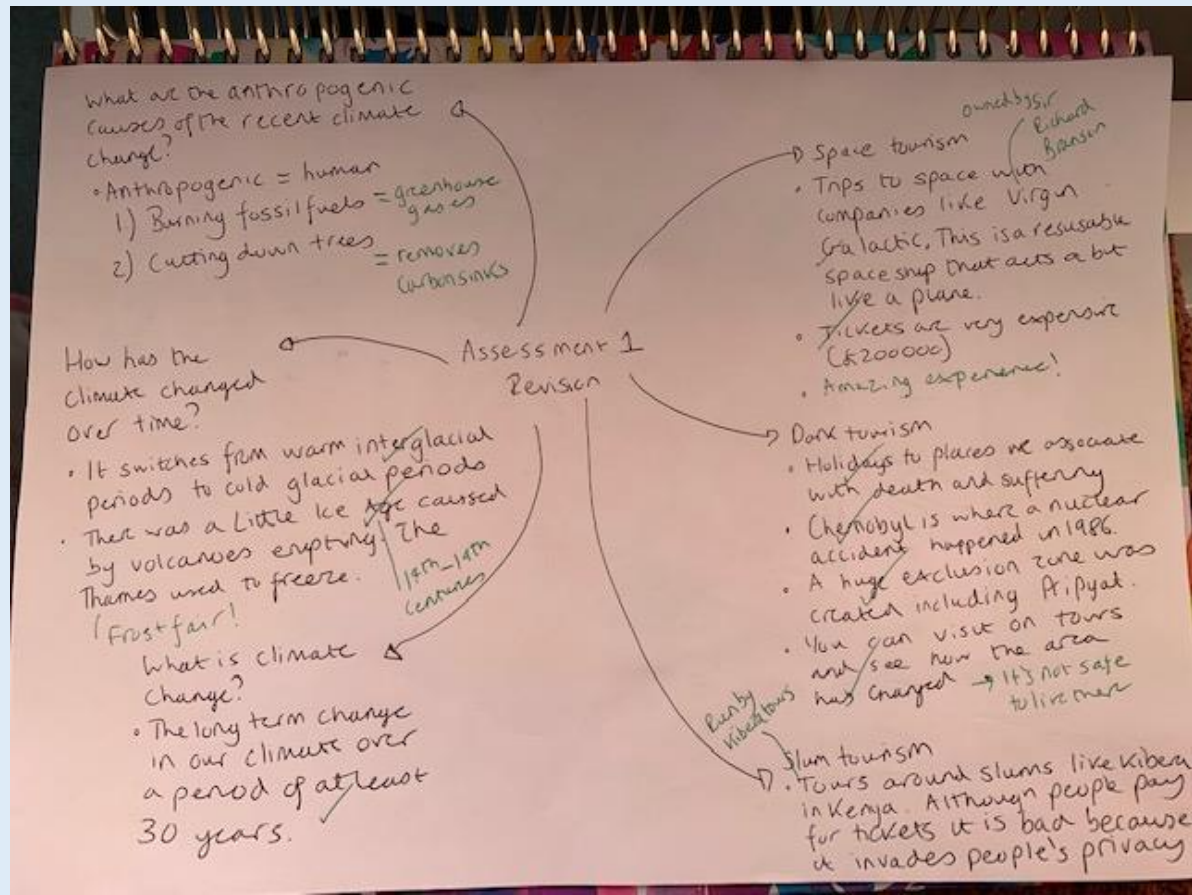 What are the anthropogenic
causes of the recent climate
change?
• Anthropogenic = human
1) Burning fossil fuels = greenhouse
gases
2) Cutting down trees = removes
carbon sinks
How has the
climate changed
over time?
• It switches from warm interglacial
periods to cold glacial periods
• There was a Little Ice Age caused
by volcanoes erupting. The
Thames used to freeze.
Frost fair!
14th-19th
centuries
What is climate
change?
• The long term change
in our climate over
a period of at least
30 years.
Assessment 1
Revision
Space tourism
owned by Sir
Richard
Branson
• Trips to space with
companies like Virgin
Galactic. This is a resusable
space ship that acts a bit
like a plane.
• Tickets are very expensive
(£200000)
• Amazing experience!
Dark tourism
• Holidays to places we associate
with death and suffering
• Chernobyl is where a nuclear
accident happened in 1986.
• A huge exclusion zone was
created including Pripyat.
• You can visit on tours
and see how the area
has changed → It's not safe
to live there
Run by
Kibera tours
Slum tourism
• Tours around slums like Kibera
in Kenya. Although people pay
for tickets it is bad because
it invades people's privacy